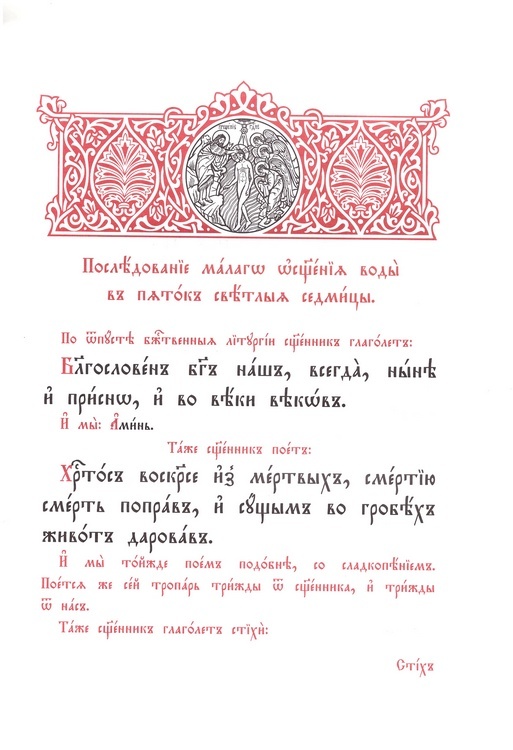 Послѣ́дованїе ма́лагѡ ѡ҆сщ҃е́нїѧ воды̀
въ пѧто́къ свѣ́тлыѧ седми́цы.
По ѿпꙋ́стѣ бж҃е́ственныѧ лїтꙋргі́и сщ҃е́нникъ глаго́летъ:
Бл҃гослове́нъ бг҃ъ на́шъ, всегда̀, ны́нѣ
и҆ при́снѡ, и҆ во вѣ́ки вѣкѡ́въ.
И҆ мы̀: А҆ми́нь.
Та́же сщ҃е́нникъ пое́тъ:
Хрⷭ҇то́съ воскр҃се и҆з̾ ме́ртвыхъ, сме́ртїю
сме́рть попра́въ, и҆ сꙋ́щымъ во гробѣ́хъ
живо́тъ дарова́въ.
И҆ мы̀ то́йжде пое́мъ подо́бнѣ, со сладкопѣ́нїемъ.
Пое́тсѧ же се́й тропа́рь три́жды ѿ сщ҃е́нника, и҆ три́жды
ѿ на́съ.
Та́же сщ҃е́нникъ глаго́летъ стїхѝ:
Сті́хъ